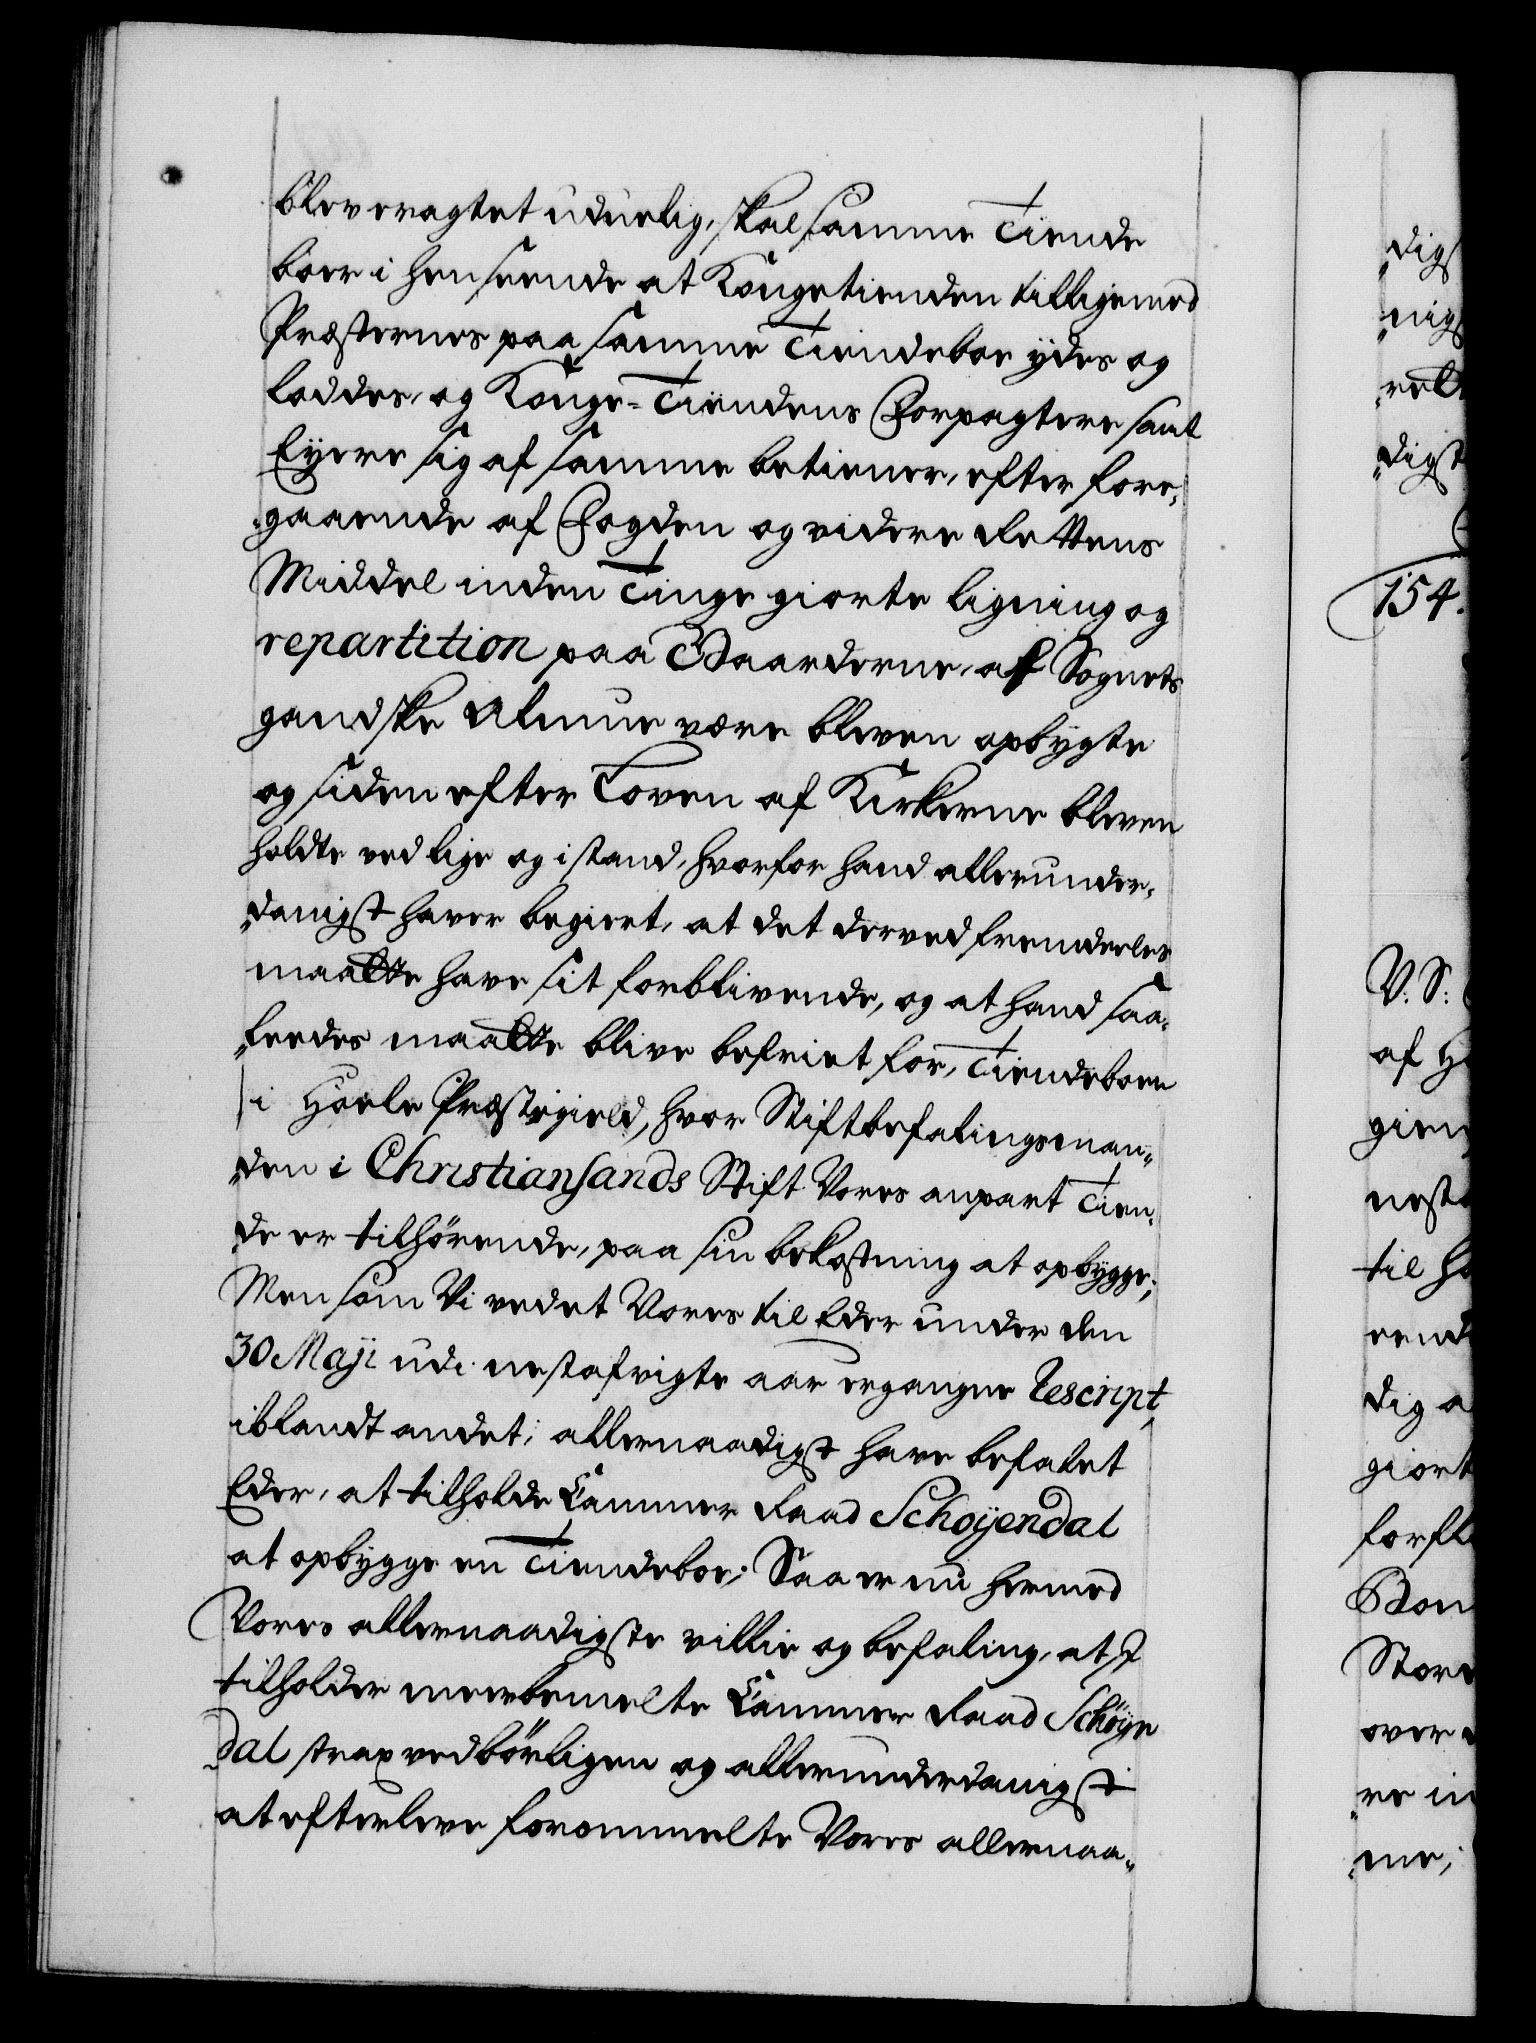 blev eragtet uduelig, skal samme Tiende
boer i henseende at Kongetienden tilligemed
Præsternes paa samme Tiendeboe ydes og
loddes, og Konge-Tiendens Forpagtere samt
Eyere sig af samme betiener, efter fore-
gaaende af Fogden og videre Rettens
Middel inden Tinge giorte ligning og
repartition paa Gaarderne, af Sognets
gandske Almue være bleven opbygte
og siden efter Loven af Kirkerne bleven
holdte ved lige og i stand, hvorfor hand allerunder-
danigst haver begiert, at det derved fremdeeles
maatte have sit forblivende, og at hand saa-
leedes maatte blive befriet for, Tiendeboen
i Hoele Præstegield, hvor Stiftbefalingsman-
den i Christiansands Stift Vores anpart Tien-
de er tilhörende, paa sin bekostning at opbygge;
Men som Vi vedet Vores til Eder under den
30 Maji udi nestafvigte aar ergangne Rescript,
iblandt andet, allernaadigst have befalet
Eder, at tilholde Cammer Raad Schøyendal
at opbygge en Tiendeboe; Saa er nu hermed
Vores allernaadigste villie og befaling, at I
tilholder meerbemelte Cammer Raad Schöyen
dal strax vedbörligen og allerunderdanigst
at efterleve forommelte Vores allernaa-
digs
nigs
digst
154.
V. S:
af H
gien
nest
til h
rend
dig a
giort
Bon
Store
over
re in
me,